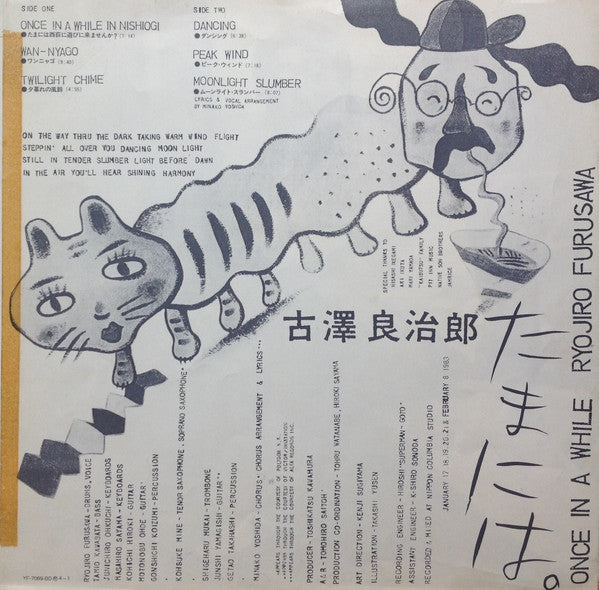 SIDE ONE
ONCE IN A WHILE IN NISHIOGI
●たまには西荻に遊びに来ませんか?(7:14)
WAN-NYAGO
●ワンニャゴ (5:40)
TWILIGHT CHIME
●夕暮れの風鈴 (4:55)
SIDE TWO
DANCING
●ダンシング (6:38)
PEAK WIND
●ピーク・ウィンド (7:18)
MOONLIGHT SLUMBER
●ムーンライト・スランバー (6:07)
LYRICS & VOCAL ARRANGEMENT
BY MINAKO YOSHIDA
ON THE WAY THRU THE DARK TAKING WARM WIND FLIGHT
STEPPIN' ALL OVER YOU DANCING MOON LIGHT
STILL IN TENDER SLUMBER LIGHT BEFORE DAWN
IN THE AIR YOU'LL HEAR SHINING HARMONY
RYOJIRO FURUSAWA-DRUMS, VOICE
TAMIO KAWABATA-BASS
JUNICHIRO OHKUCHI-KEYBOARDS
MASAHIRO SAYAMA-KEYBOARDS
KOHICHI HIROKI-GUITAR
MOTONOBU OHDE-GUITAR
GONSHICHI KOIZUMI-PERCUSSION
KOHSUKE MINE-TENOR SAXOPHONE, SOPRANO SAXOPHONE*
SHIGEHARU MUKAI-TROMBONE
JUNSHI YAMAGISHI-GUITAR**
GETAO TAKAHASHI-PERCUSSION
MINAKO YOSHIDA-CHORUS, CHORUS ARRANGEMENT & LYRICS***
*APPEARS THROUGH THE COURTESY OF POLYDOR K.K.
**APPEARS THROUGH THE COURTESY OF VICTOR/INVITATION
***APPEARS THROUGH THE COURTESY OF ALFA RECORDS INC.
PRODUCER-TOSHIKATSU KAWAMURA
A&R-TOMOHIRO SAITOH
PRODUCTION CO-ORDINATION-TOHRU WATANABE, HIROKI SAYAMA
ART DIRECTION-KENJI SUGIYAMA
ILLUSTRATION-TAKASHI YUSEN
RECORDING ENGINEER-HIROSHI "SUPERMAN" GOTO
ASSISTANT ENGINEER-K-SHIRO SONODA
RECORDED & MIXED AT NIPPON COLUMBIA STUDIO
JANUARY 17, 18, 19, 20, 21 & FEBRUARY 8 1983
SPECIAL THANKS TO
HISASHI IKEGAMI
AKI IKUTA
MARI YAMADA
"KAIBUTSU" FAMILY
PIT INN MUSIC
NATIVE SON BROTHERS
JAMRICE
古澤良治郎
たまには。
ONCE IN A WHILE RYOJIRO FURUSAWA